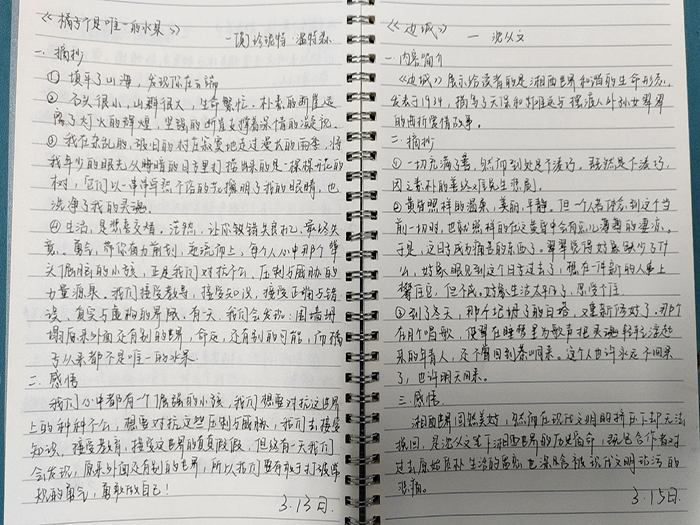 《橘子不是唯一的水果》
—[英]珍妮特·温特森
一. 摘抄
① 填平了山海，发现你在云端
② 名头很小，山川很大，生命繁忙。朴素的断崖远
离了灯火的辉煌，坚强的断崖支撑着深情的凝视
③ 我在杂乱的、破旧的村庄寂寞地走过漫长的雨季，将
我年少的眼光从晦暗的日子里打捞出来的是一棵棵开花的
树，它们以一串串卓然不俗的花擦明了我的眼睛，也
洗净了我的灵魂。
④ 生活，是悲喜交集。茫然，让你错失良机、意志失
竟。勇气，带你奋力前刺，逆流而上，每个人心中那个举
头倔强的小孩，正是我们对抗不公、压制与威胁的
力量源泉。我们接受教导，接受知识，接受正确与错
误、真实与虚构的界限。有天，我们会发现：围墙坍
塌原来外面还有别的世界，命运，还有别的可能，而橘
子从来都不是唯一的水果
二. 感悟
我们心中都有一个倔强的小孩，我们想要对抗这世界
上的种种不公，想要对抗这些压制与威胁，我们去接受
知识，接受教育，接受这世界的真真假假，但终有一天我们
会发现，原来外面还有别的世界，所以我们要有敢于打破常
规的勇气，勇敢做自己！
3.13日.
《边城》
— 沈从文
一. 内容简介
《边城》展示给读者的是湘西世界和谐的生命形态，
发表于1934，描写了天保和傩送与摆渡人外孙女翠翠
的曲折爱情故事。
二. 摘抄
① 一切充满了善，然而到处是不凑巧。既然是不凑巧，
因之素朴的善终难免产生悲剧。
② 黄昏照样的温柔、美丽、平静。但一个人若体念到这个当
前一切时，也就照样的在这黄昏中会有点儿薄薄的凄凉。
于是，这日子成为痛苦的东西了。翠翠觉得好像缺少了什
么，好像眼见到这个日子过去了，想在一件新的人事上
攀住它，但不成。好像生活太平凡了，忍受不住
③ 到了冬天，那个圮坍了的白塔，又重新修好了。那个
在月下唱歌，使翠翠在睡梦里为歌声把灵魂轻轻浮起
来的年青人，还不曾回到茶峒来。这个人也许永远不回来
了，也许明天回来。
三. 感悟
湘西世界固然美好，然而在现代文明的挤压下却无法
挽回，是沈从文笔下湘西世界的历史宿命，既包含作者对
过去原始质朴生活的留恋，也深含被现代文明 的
悲痛。
3.15日.